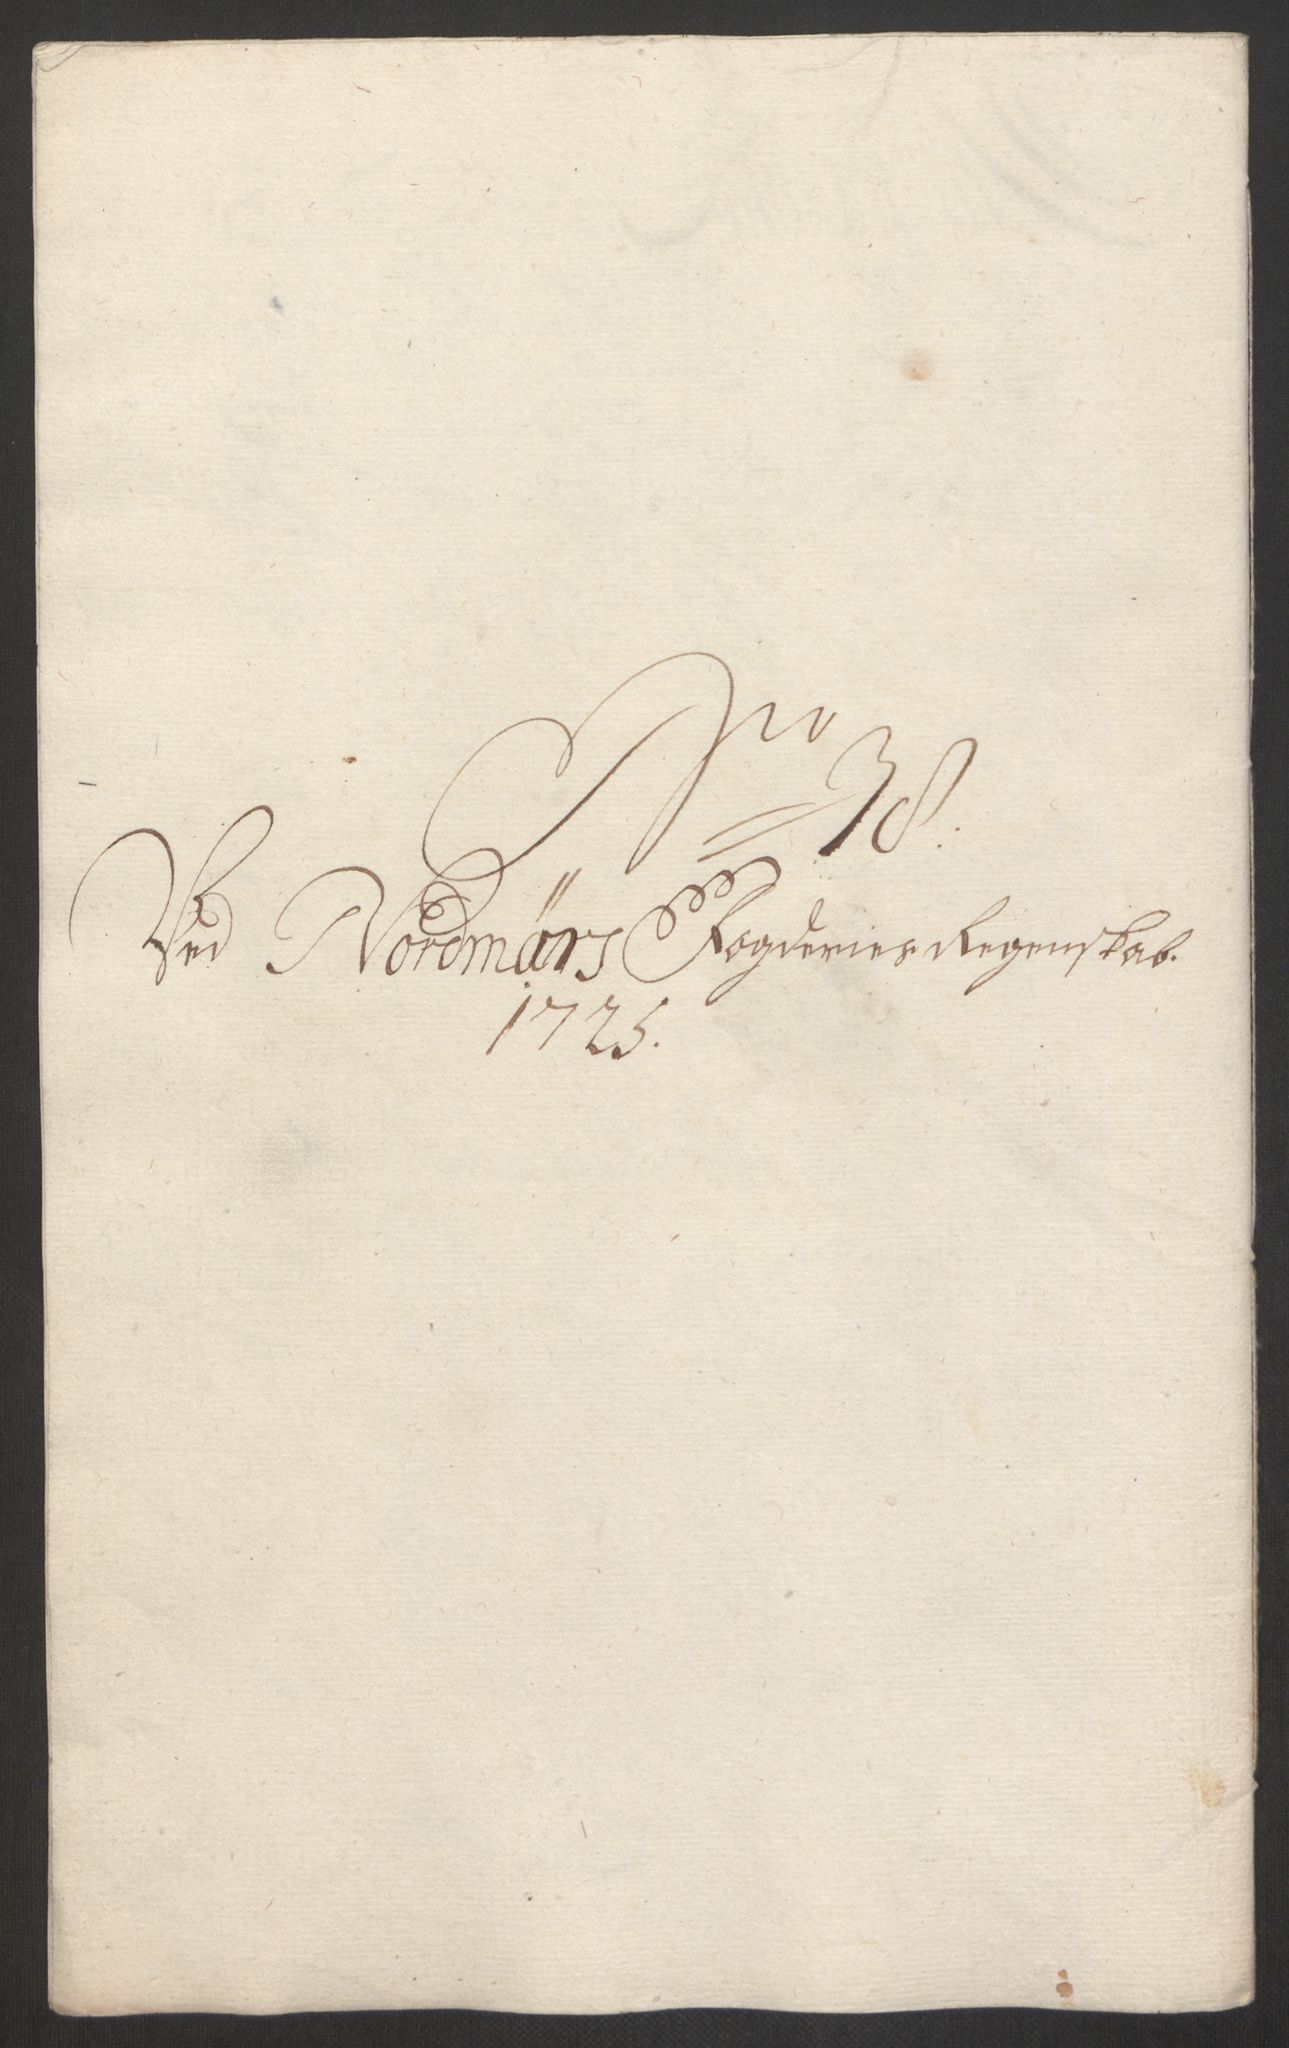 Nro 38.
Ved Nordmørs Fogderies Regenskab.
1725.